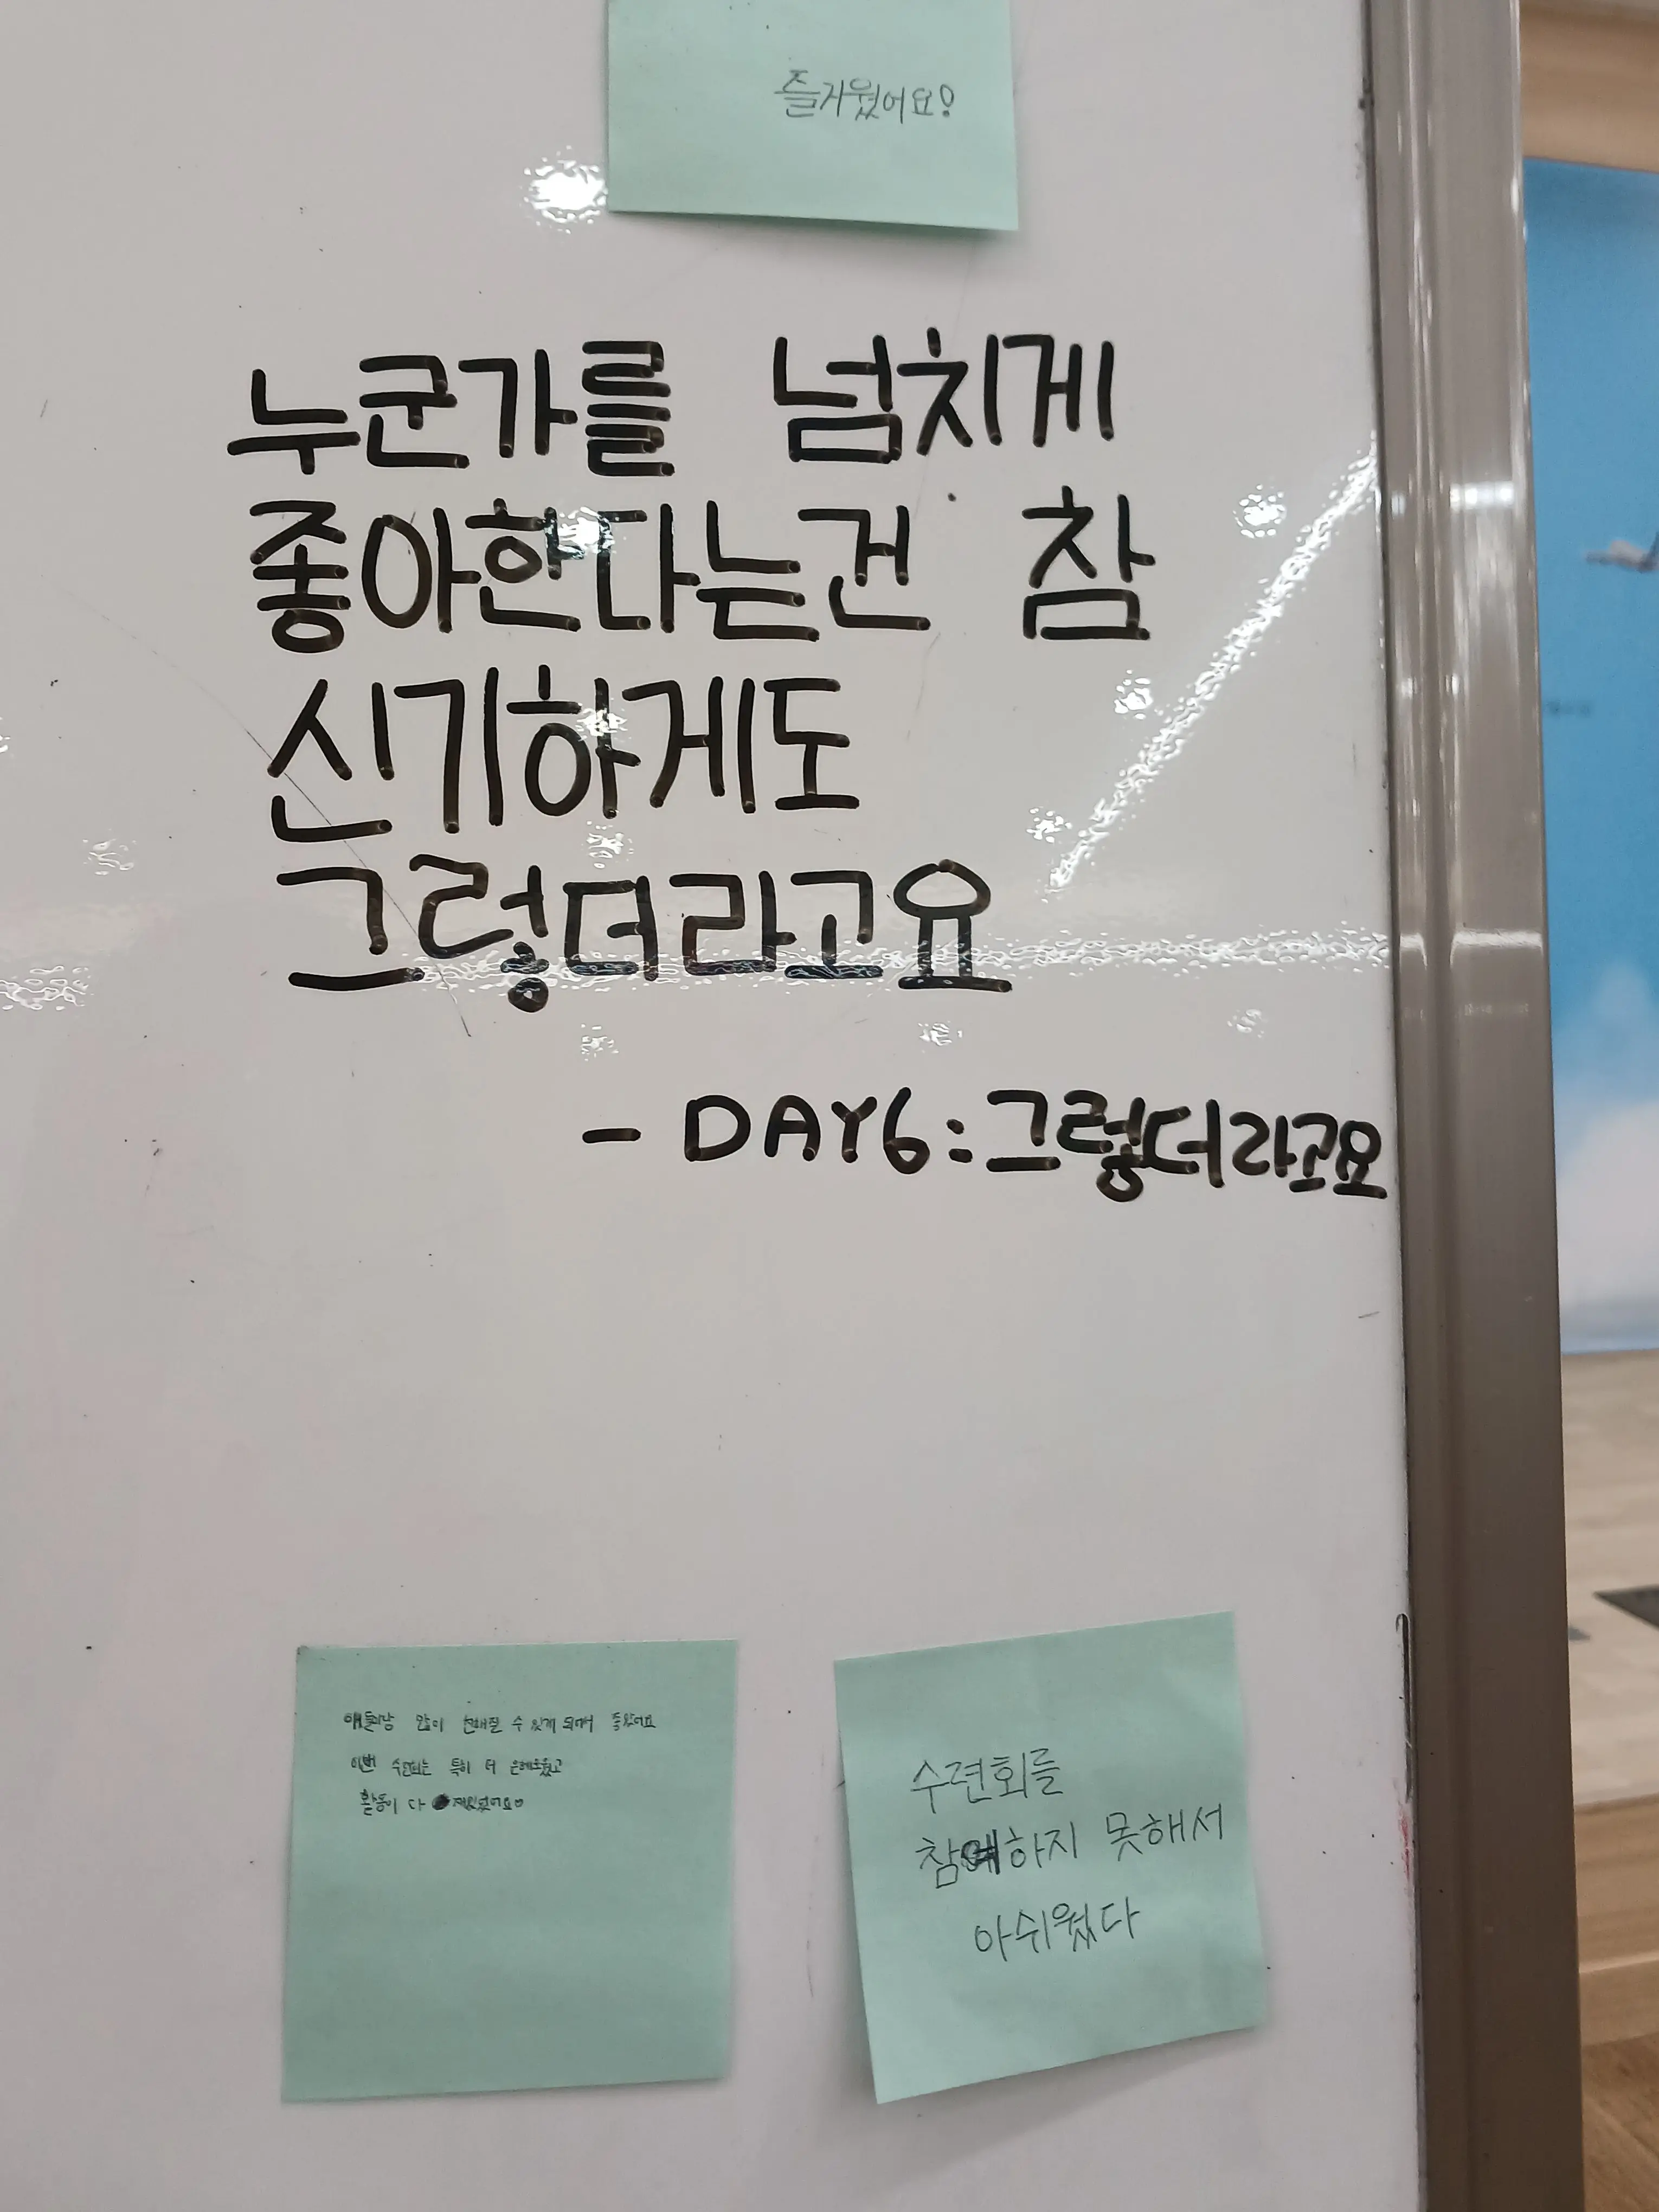 즐거웠어요!
누군가를 넘치게
좋아한다는건 참
신기하게도
그렇더라고요
- DAY6:그렇더라고요
애들이랑 많이 친해질 수 있게 되어서 좋았어요
이번 수련회는 특히 더 은혜로웠고
활동이 다 재밌었어요
수련회를
참예하지 못해서
아쉬웠다